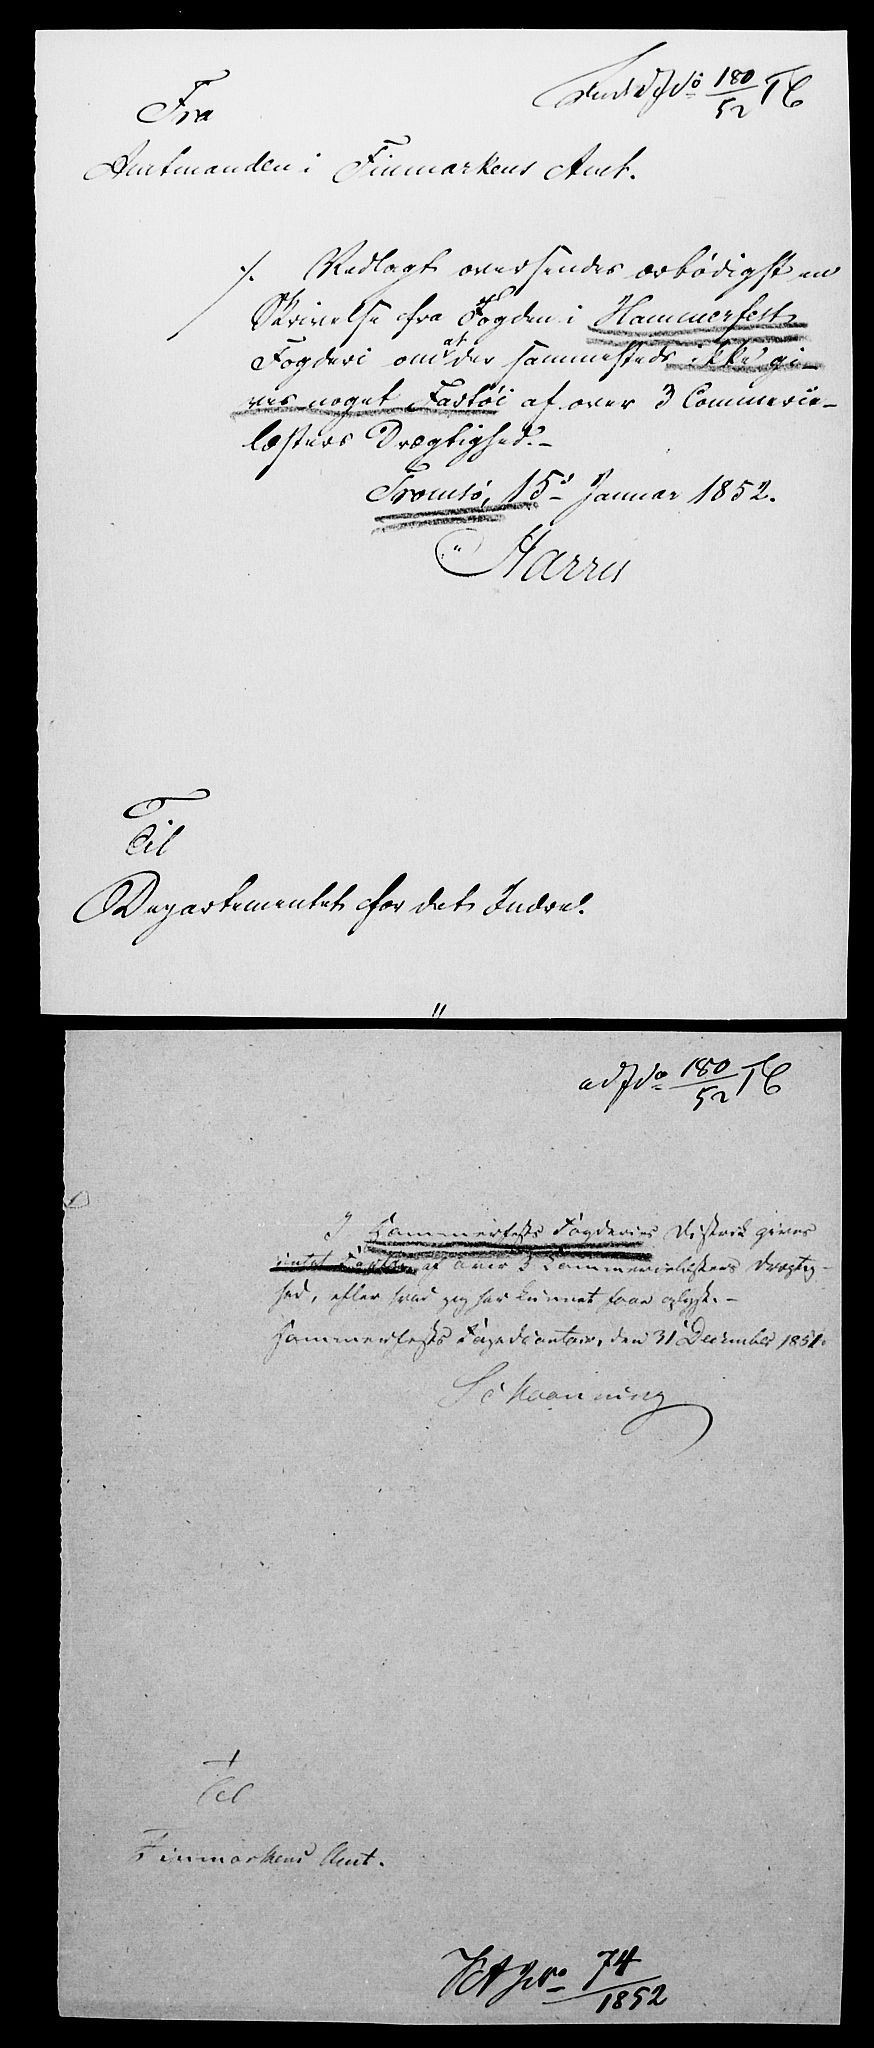 Indk JNo 180/52 TC
Fra
Amtmanden i Finmarkens Amt.
./. Vedlagt oversendes ærbødigst en
Skrivelse fra Fogden i Hammerfests
Fogderi om at der sammesteds ikke gi-
ves noget Fartøi af over 3 Commercie-
læsters Drægtighed.-
Tromsø, 15d Januar 1852.
Harris
Til
Departementet for det Indre.
ad JNo 180/52 TC
I Hammerfests Fogderies District gives
intet Fartøi af over 3 Commercielæsters Drægtig-
hed, efter hvad jeg har kunnet faae oplyst.-
Hammerfests Fogedcontoir, den 31 December 1851.
Schaanning
Til
Finmarkens Amt.
JNo 74/1852